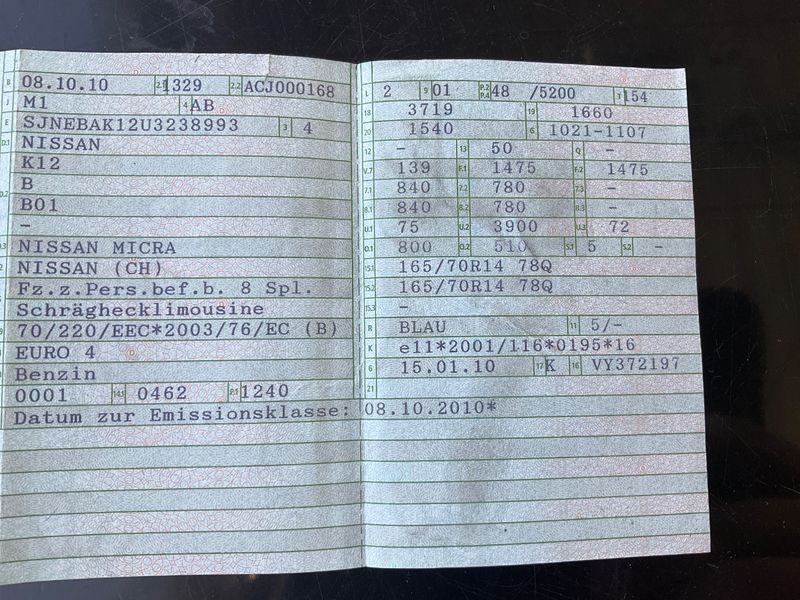 B 08.10.10 2.1 1329 2.2 ACJ000168
J M1 4 AB
E SJNEBAK12U3238993 3 4
D.1 NISSAN
K12
D.2 B
B01
-
D.3 NISSAN MICRA
2 NISSAN (CH)
Fz.z.Pers.bef.b. 8 Spl.
Schräghecklimousine
70/220/EEC*2003/76/EC (B)
EURO 4
Benzin
0001 14.1 0462 P.1 1240
Datum zur Emissionsklasse: 08.10.2010*
L 2 9 01 P.2 P.4 48 /5200 T 154
18 3719 19 1660
20 1540 G 1021-1107
12 - 13 50 Q -
V.7 139 F.1 1475 F.2 1475
7.1 840 7.2 780 7.3 -
8.1 840 8.2 780 8.3 -
U.1 75 U.2 3900 U.3 72
O.1 800 O.2 510 S.1 5 S.2 -
15.1 165/70R14 78Q
15.2 165/70R14 78Q
15.3 -
R BLAU 11 5/-
K e11*2001/116*0195*16
6 15.01.10 17 K 16 VY372197
21